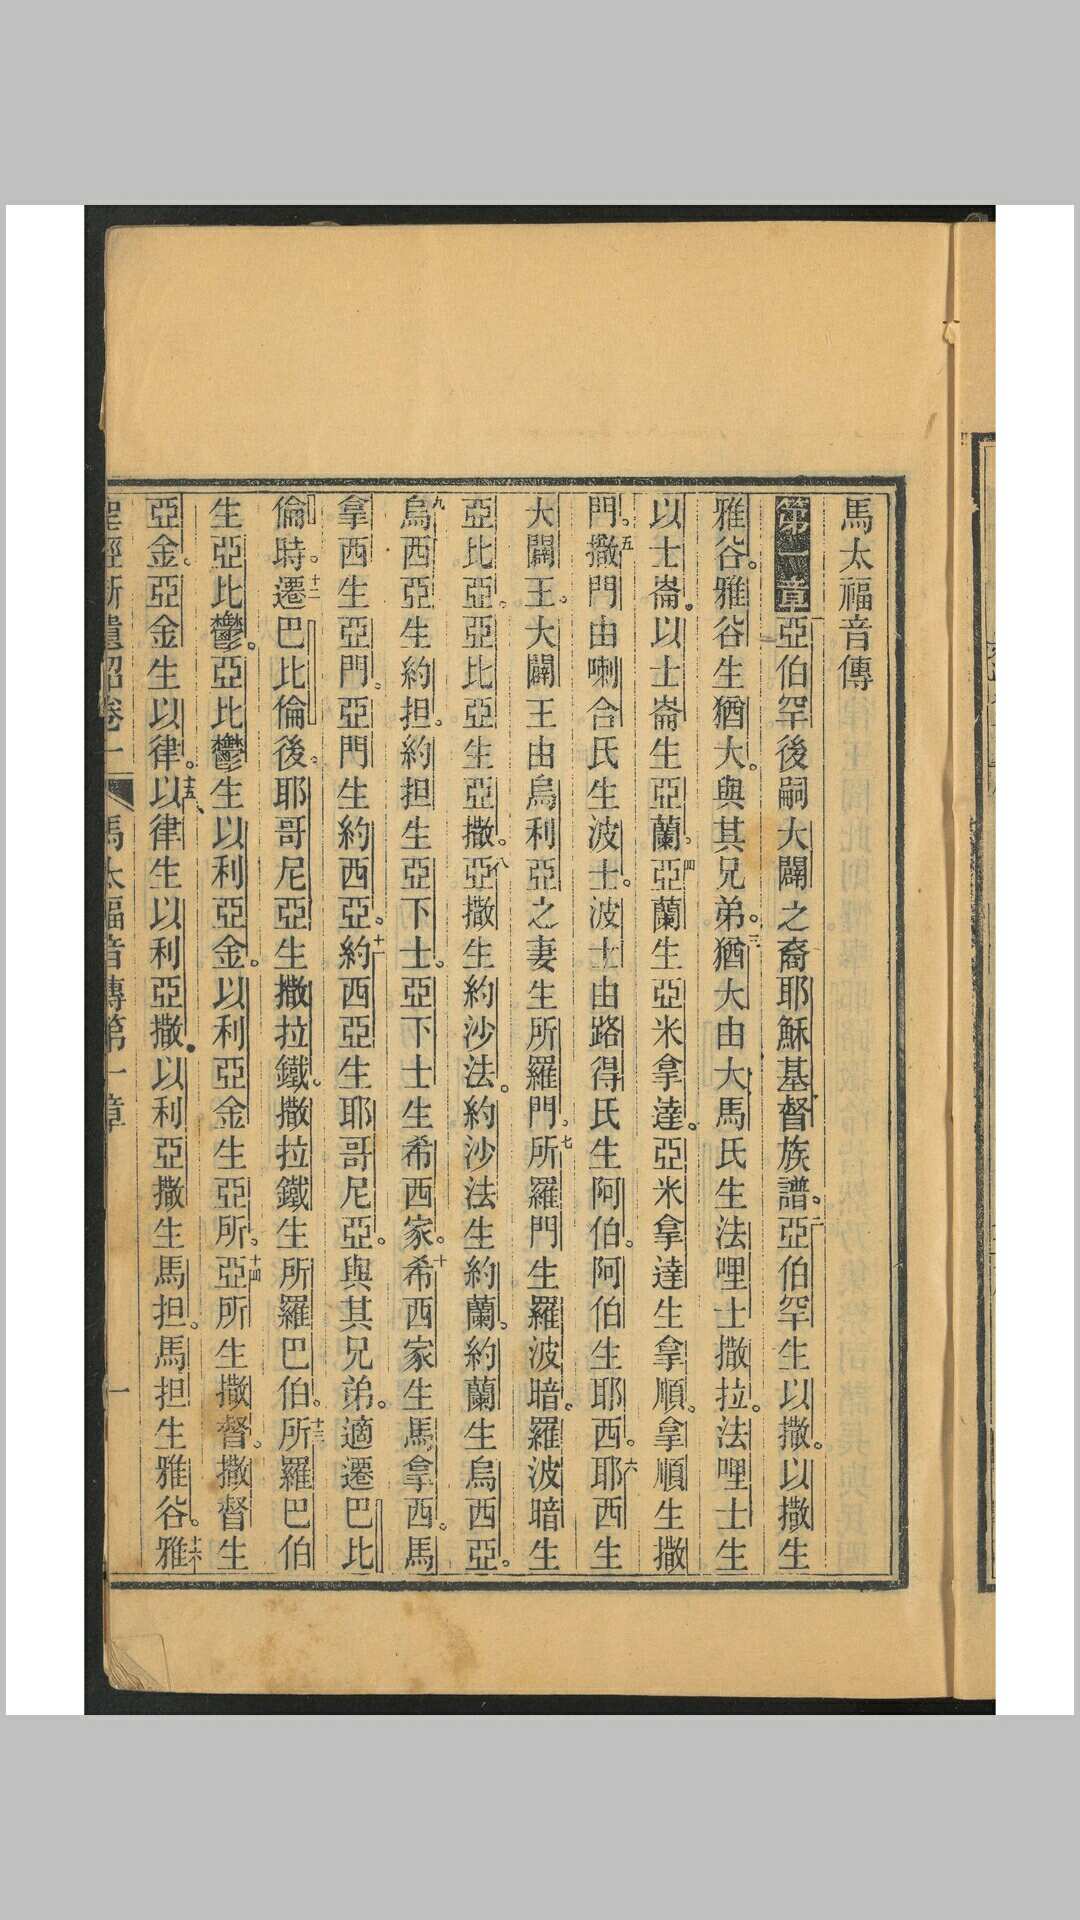 馬太福音傳
第一章亞伯罕後嗣大闢之裔耶穌基督族譜。二亞伯罕生以撒。以撒生
雅谷。雅谷生猶大。與其兄弟。三猶大由大馬氏生法哩士撒拉。法哩士生
以士崙。以士崙生亞蘭。四亞蘭生亞米拿達。亞米拿達生拿順。拿順生撒
門。五撒門由喇合氏生波士。波士由路得氏生阿伯。阿伯生耶西。六耶西生
大闢王。大闢王由烏利亞之妻生所羅門。七所羅門生羅波暗。羅波暗生
亞比亞。亞比亞生亞撒。八亞撒生約沙法。約沙法生約蘭。約蘭生烏西亞。
九烏西亞生約担。約担生亞下士。亞下士生希西家。十希西家生馬拿西。馬
拿西生亞門。亞門生約西亞。十一約西亞生耶哥尼亞。與其兄弟。適遷巴比
倫時。十二遷巴比倫後。耶哥尼亞生撒拉鐵。撒拉鐵生所羅巴伯。十三所羅巴伯
生亞比鬱。亞比鬱生以利亞金。以利亞金生亞所。十四亞所生撒督。撒督生
亞金。亞金生以律。十五以律生以利亞撒。以利亞撒生馬担。馬担生雅谷。十六雅
聖經新遺詔卷一 馬太福音傳第一章 一